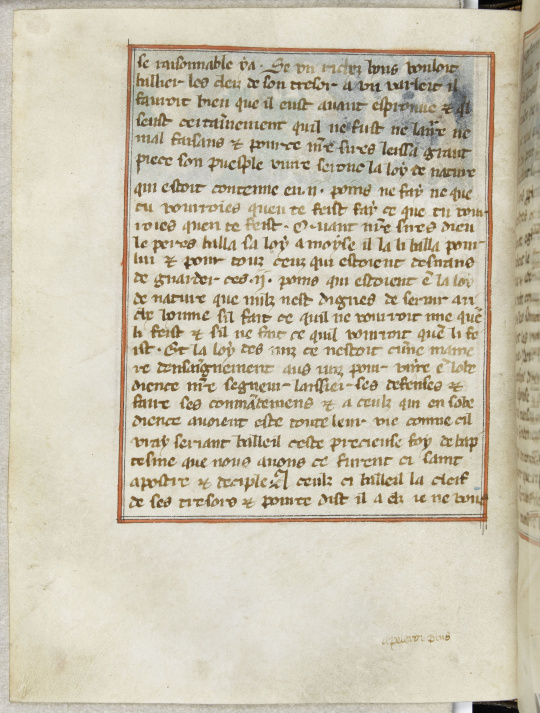 se raisonnable ya. Se un riches hons vouloit
baillier les clez de son tresor a un varlert il
fauroit bien que il eust avant esprouve ⁊ qil
seust certainement quil ne fust ne larre ne
mal faisans ⁊ pource nre sires leissa grant
piece son pueple vivre seconc la loy de nature
qui estoit contenue en .ii. poins ne fay ne que
tu vourroies quen te feist fay ce que tu vour
roies quen te feist. Quant nre sires dieu
le peres bailla sa loy a moyse il la li bailla pour
lui ⁊ pour touz ceuz qui estoient desirans
de guarder ces .ii. poins qui estoient ē la loy
de nature que nulz nest dignes de servir au
homme sil fait ce quil ne vourroit mie quē
li feist ⁊ sil ne fait ce quil vourroit quē li fe
ist. Et la loy des iuiz ce nestoit cune manie
re denseignement aus iuiz pour vivre ē lobe
dience nre segneur laissier ses defenses ⁊
faire ses commādemens ⁊ a ceulz qui en sobe
dience avoient este toute leur vie comme cil
vray seriant bailleil ceste precieuse foy de bap
tesme que nous avons ce furent ci saint
apostre ⁊ deciple A ceulz ci bailleil la cleif
de ses tresors ⁊ pource dist il a eulz ie ne vous
apeleroi plus